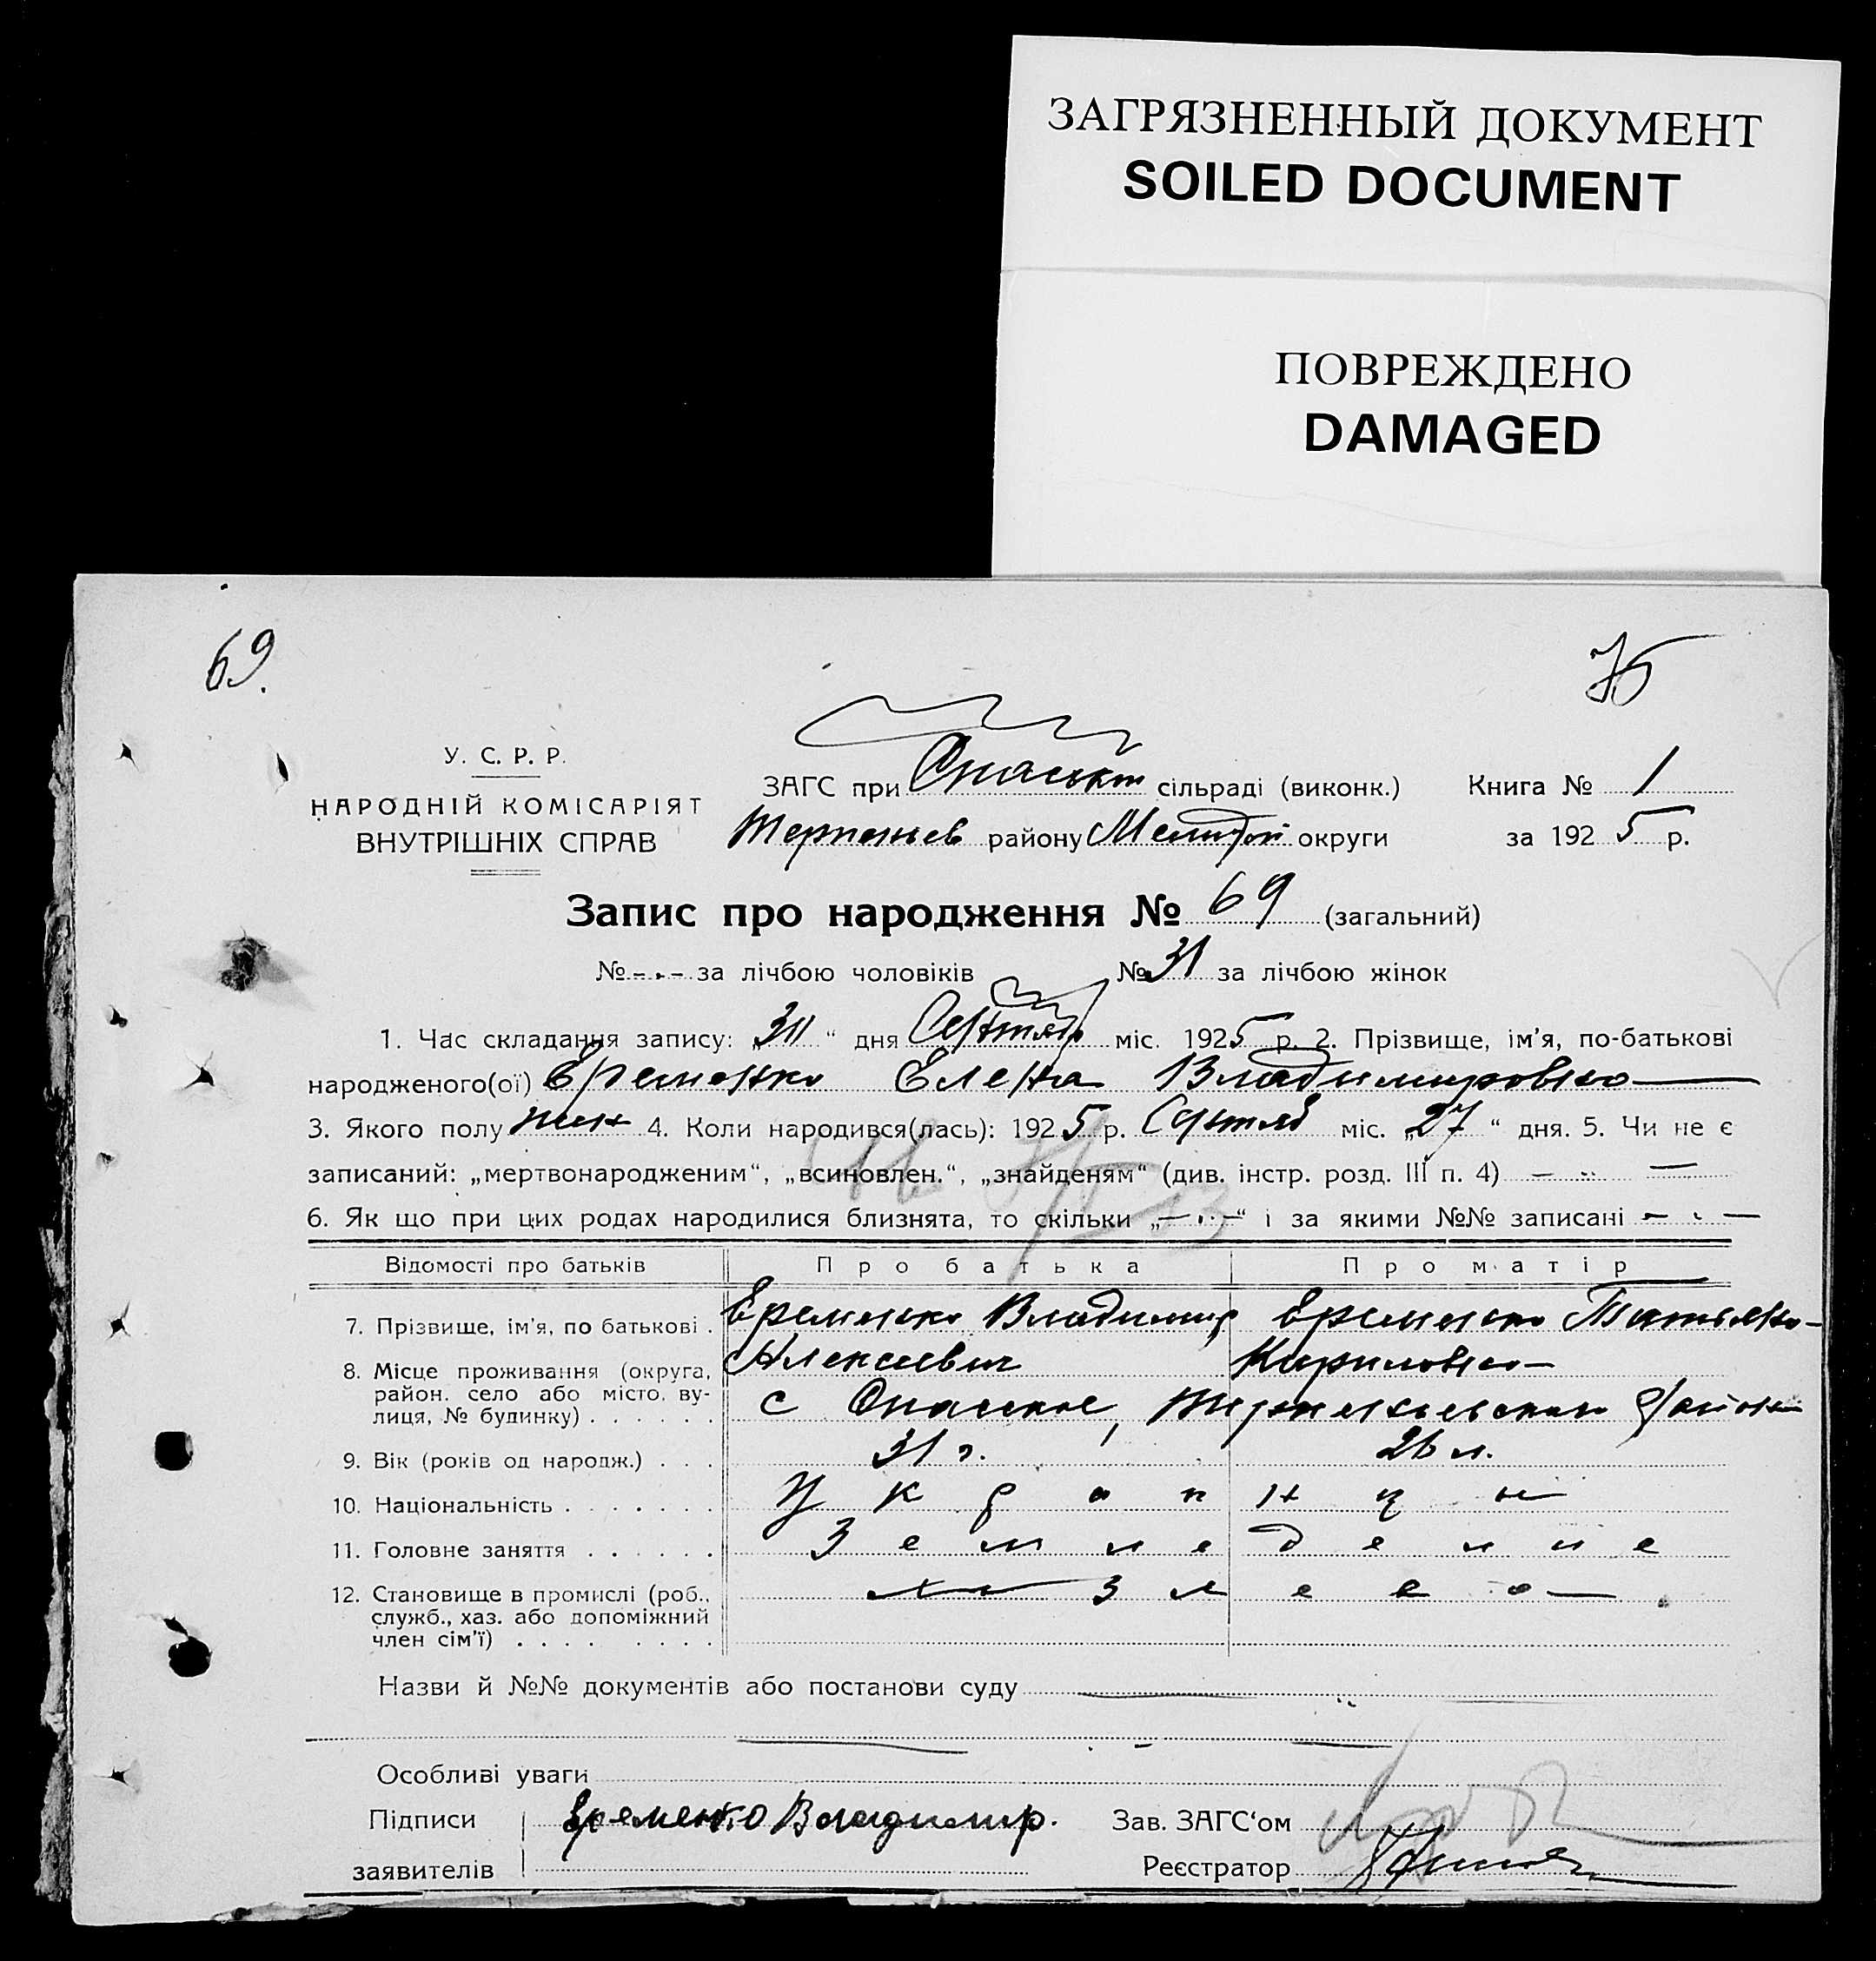 ЗАГРЯЗНЕННЫЙ ДОКУМЕНТ
SOILED DOCUMENT
ПОВРЕЖДЕНО
DAMAGED
69.
75
У. С. Р. Р.
НАРОДНІЙ КОМІСАРІЯТ
ВНУТРІШНІХ СПРАВ
ЗАГС при Спаськ сільраді (виконк.) Книга № 1
Терпеньев району Мелитоп округи за 1925 р.
Запис про народження № 69 (загальний)
№ -.- за лічбою чоловіків № 31 за лічбою жінок
1. Час складання запису: „ “ дня міс. 1925 р. 2. Прізвище, ім'я, по-батькові
народженого(ої) Еременко Елена Владимировна
3. Якого полу жен 4. Коли народився(лась): 1925 р. міс. „27“ дня. 5. Чи не є
записаний: „мертвонародженим“, „всиновлен.“, „знайденям“ (див. інстр. розд. III п. 4) —
6. Як що при цих родах народилися близнята, то скільки „—.—“ і за якими №№ записані — . —
Відомості про батьків Про батька Про матір
7. Прізвище, ім'я, по батькові . Еременко Владимир Еременко Татьяна
Алексеевич Кириловна
8. Місце проживання (округа,
район. село або місто, ву-
лиця, № будинку) . . . . . . с Спаское, Терпеньевского района
9. Вік (років од народж.) . . . 31 г. 26 л.
10. Національність . . . . . . . Украинци
11. Головне заняття . . . . . . Земледелие
12. Становище в промислі (роб.,
служб., хаз. або допоміжний
член сім'ї) . . . . . . . . .
Назви й №№ документів або постанови суду
Особливі уваги
Підписи Еременко Владимир. Зав. ЗАГС'ом
заявителів Реєстратор